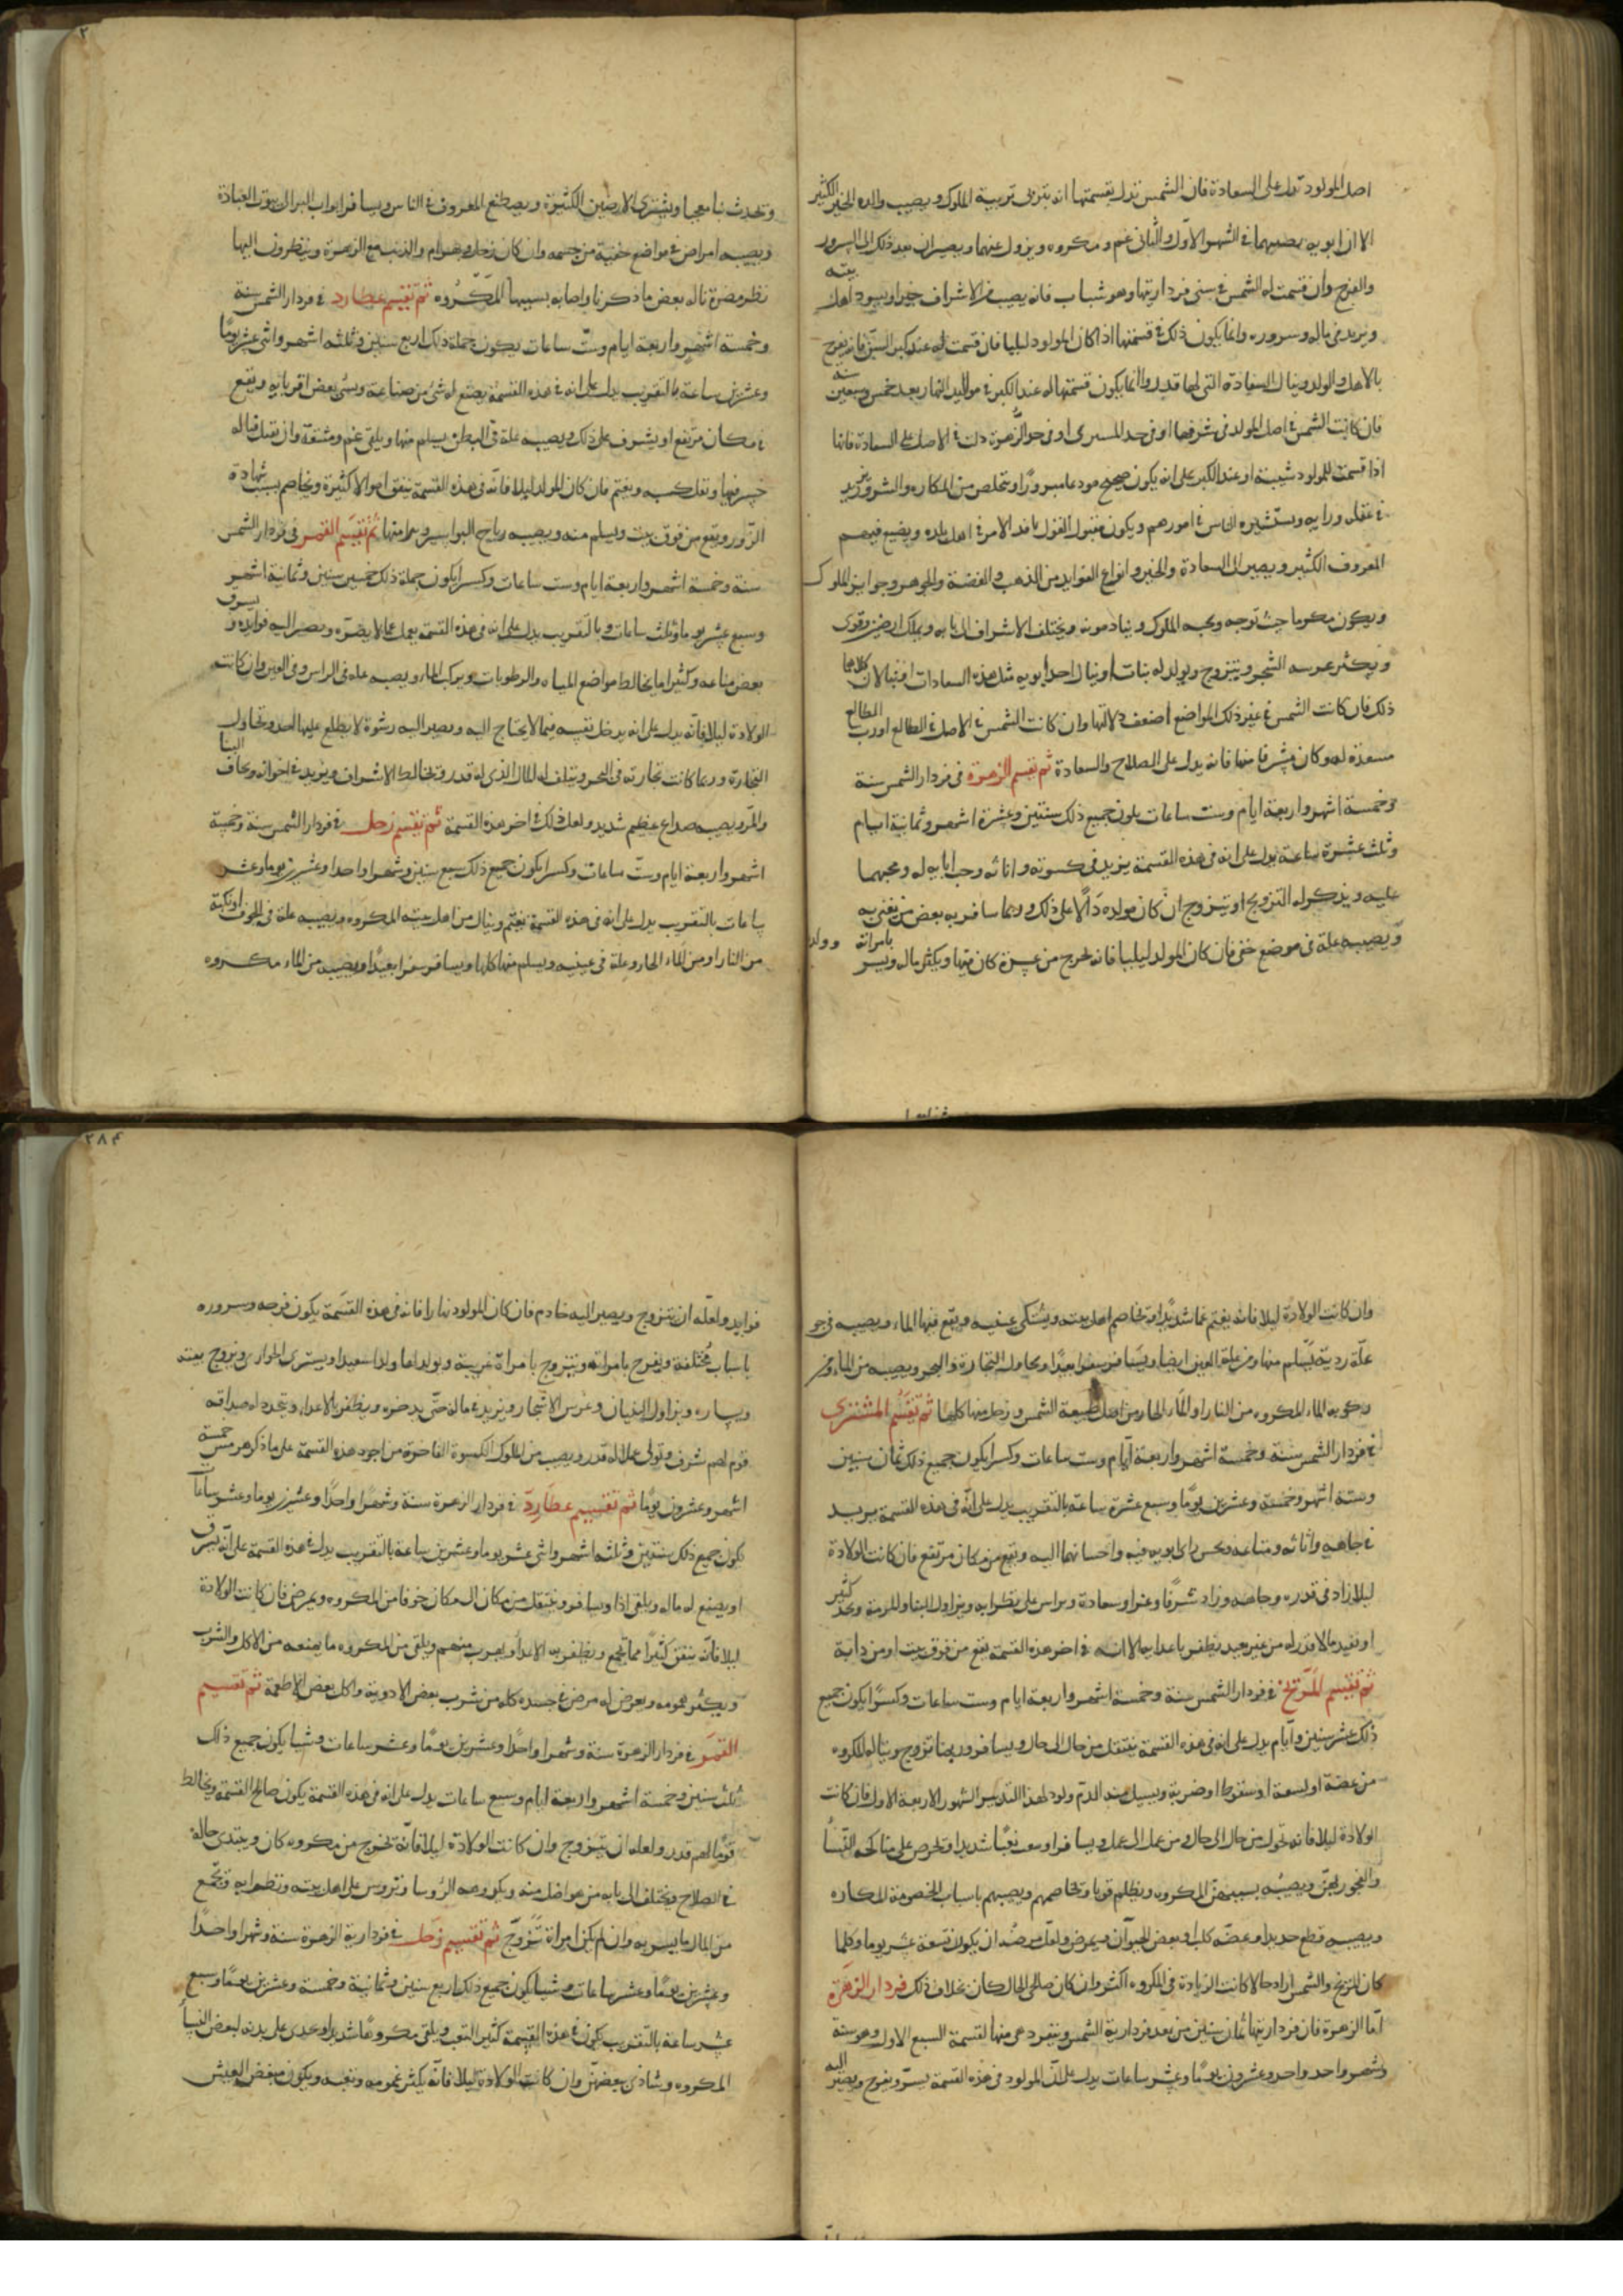 اصل المولود تدل على السعادة فان الشمس تدل بقسمتها انه يتربى تربية الملوك ويصيب والده الخير الكثير
الا ان ابويه يصيبهما فى الشهر الاول والثانى غم ومكروه ويزول عنهما ويصيران بعد ذلك الى السرور
والفرح وان قسمت له الشمس فى سنى فرداريتها وهو شباب فانه يصيب من الاشراف خيرا ويسود اهل بيته
ويزيد فى ماله وسروره وانما يكون ذلك فى قسمتها اذا كان المولود ليليا فان قسمت له عند كبر السن فانه يفرح
بالاهل والولد وينال السعادة التى لها قدر وانما يكون قسمتها له عند الكبر فى مواليد النهار بعد خمس وسبعين سنة
فان كانت الشمس فى اصل المولد فى شرفها او فى حد المشترى او فى حد الزهرة دلت فى الاصل على السعادة فانها
اذا قسمت للمولود شبيبة او عند الكبر على انه يكون صحيح مودعا مسرورا ويتخلص من المكاره والشرور ويزيد
فى عقله ورايه ويستشيره الناس فى امورهم ويكون مقبول القول نافذ الامر فى اهل بلده ويصنع فيهم
المعروف الكثير ويصير الى السعادة والخير وانواع الفوايد من الذهب والفضة والجوهر وجوايز الملوك
ويكون مكرما حيث توجه ويحبه الملوك وينادمونه ويختلف الاشراف الى بابه ويملك ارضين وقرى
ويكثر غرسه الشجر ويتزوج ويولد له بنات او ينال احد ابويه مثل هذه السعادات او ينالان كلاهما
ذلك فان كانت الشمس فى غير ذلك المواضع اضعف دلالتها وان كانت الشمس فى الاصل فى الطالع او رب الطالع
مسعدة له وكان مشرقا منها فانه يدل على الصلاح والسعادة ثم تقسم الزهرة فى فردار الشمس سنة
وخمسة اشهر واربعة ايام وست ساعات يكون جميع ذلك سنتين وعشرة اشهر وثمانية ايام
وثلث عشرة ساعة يدل على انه فى هذه القسمة يزيد فى كسوته واثاثه وحب ابايه له ومحبهما
عليه ويذكر له التزويج او يتزوج ان كان مولده دالا على ذلك وربما سافر به بعض من يعنى به
ويصيبه علة فى موضع خفى فان كان المولد ليليا فانه يخرج من عسرة كان فيها ويكثر ماله ويسر بامراة وولد
وتحدث نبا معجبا ويشترى الارضين الكثيرة ويصطنع المعروف فى الناس ويسافر ابواب البر الى بيوت العبادة
ويصيبه امراض فى مواضع خفية من جسمه وان كان زحل وبهرام والذنب مع الزهرة وينظرون اليها
نظر مضرة ناله بعض ما ذكرنا واصابه بسببها المكروه ثم تقسم عطارد فى فردار الشمس سنة
وخمسة اشهر واربعة ايام وست ساعات يكون جملة ذلك اربع سنين وثلثه اشهر واثنى عشر يوما
وعشرين ساعة بالتقريب يدل على انه فى هذه القسمة يصنع له شئ من صناعة ويسئ بعض اقربايه ويقع
فى مكان مرتفع او يشرف على ذلك ويصيبه علة فى البطن يسلم منها ويلقى غم ومشقة وان نقبل قباله
خسر فيها ويقل كسبه ويغتم فان كان المولد ليلا فانه فى هذه القسمة ينفق اموالا كثيرة ويخاصم بسبب شهادة
الزور ويقع من فوق بيت ويسلم منه ويصيبه رياح البواسير ويبرا منها ثم تقسم القمر فى فردار الشمس
سنة وخمسة اشهر واربعة ايام وست ساعات وكسرا يكون جملة ذلك خمس سنين وثمانية اشهر
وسبع عشر يوما وثلث ساعات بالتقريب يدل على انه فى هذه القسمة يعمل عملا لا يضره ويصير اليه فوايد ويسرف
بعض متاعه وكثيرا ما يخالط مواضع المياه والرطوبات ويركب الماء ويصيبه علة فى الراس وفى العين وان كانت
الولادة ليلا فانه يدل على انه يدخل نفسه فيما لا يحتاج اليه ويصير اليه رشوة لا يطلع عليها احد ويحاول
التجارة وربما كانت تجارته فى البحر ويتلف له المال الذى له قدر ويخالط الاشراف ويزيد فى اخوانه ويخاف
والمر ويصيبه صداع عظيم شديد ولعل ذلك فى اخر هذه القسمة ثم تقسم زحل فى فردار الشمس سنة وخمسة
اشهر واربعة ايام وست ساعات وكسرا يكون جميع ذلك سبع سنين وشهرا واحدا وعشرين يوما وعشر
ساعات بالتقريب يدل على انه فى هذه القسمة يغتم وينال من اهل بيته المكروه ويصيبه علة فى الجوف او نكبة
من النار او من الماء الحار وعلة فى عينيه ويسلم منها كلها ويسافر سفرا بعيدا ويصيبه من الماء مكروه
٢٨٤
وان كانت الولادة ليلا فانه يغتم غما شديدا ويخاصم اهل بيته ويشتكى عينيه ويقع فيها الماء ويصيبه فى جو
علة ردية يسلم منها ومن علة العين ايضا ويسافر سفرا بعيدا ويحاول التجارة والبحر ويصيبه من الماء ومن
ركوبه الماء المكروه من النار او الماء الحار من اصل طبيعة الشمس وزحل منها كلها ثم تقسم المشترى
فى فردار الشمس سنة وخمسة اشهر واربعة ايام وست ساعات وكسرا يكون جميع ذلك ثمان سنين
وستة اشهر وخمسة وعشرين يوما وسبع عشرة ساعة بالتقريب يدل على انه فى هذه القسمة يزيد
فى جاهه واثاثه ومتاعه ويحسن راى ابويه فيه واحسانهما اليه ويقع من مكان مرتفع فان كانت الولادة
ليلا زاد فى قدره وجاهه وزاد شرفا وعزا وسعادة ويراس على نظرايه ويزاول البنا والمرمة ويجد كثير
او يفيد مالا قدر له من غير بعيد يظفر باعدايه الا انه فى اخر هذه القسمة يقع من فوق بيت او من دابة
ثم تقسم المريخ فى فردار الشمس سنة وخمسة اشهر واربعة ايام وست ساعات وكسرا يكون جميع
ذلك عشر سنين وايام يدل على انه فى هذه القسمة ينتقل من حال الى حال ويسافر وربما تزوج ويناله المكروه
من عضة او لسعة او سقوط او ضربة ويسيل منه الدم ولود لهذا التدبير الشهور الاربعة الاول فان كانت
الولادة ليلا فانه يتحول من حال الى حال ومن عمل الى عمل ويسافر او يتعب تعبا شديدا ويحرص على مناكحة النسا
والفجور بهن ويصيبه بسببهن المكروه ويظلم قوما ويخاصمهم ويصيبهم باسباب الخصومة المكاره
ويصيبه قطع حديد او عضه كلب او بعض الحيوان ويمرض ولعل مرضه ان يكون تسعة عشر يوما وكلما
كان المريخ والشمس اردا حالا كانت الزيادة فى المكروه اكثر وان كان صالحى الحال كان بخلاف ذلك فردار الزهرة
اما الزهرة فان فرداريتها ثمان سنين من بعد فردارية الشمس وينفرد هى منها لقسمة السبع الاول وهو سنة
وشهر واحد واحد وعشرون يوما وعشر ساعات يدل على ان المولود فى هذه القسمة يسر ويفرح ويصير اليه
فوايد ولعله ان يتزوج ويصير اليه خادم فان كان المولود نهارا فانه فى هذه القسمة يكون فرحه وسروره
باسباب مختلفة ويفرح بامراته ويتزوج بامراة غريبة ويولد لها ولدا سعيدا ويشترى الجوارى ويزوج بيته
ويساره ويزاول البنيان وغرس الاشجار ويزيد فى ماله حتى يدخره ويظفر بالاعداء ويتجدد له صداقه
قوم لهم شرف وتولى عملا له قدر ويصيب من الملوك الكسوة الفاخرة من اجود هذه القسمة على ما ذكر هرمس خمسة
اشهر وعشرون يوما ثم تقسيم عطارد فى فردار الزهرة سنة وشهرا واحدا وعشرين يوما وعشر ساعات
يكون جميع ذلك سنتين وثلثه اشهر واثنى عشر يوما وعشرين ساعة بالتقريب يدل فى هذه القسمة على انه يسرف
او يضيع له ماله ويلقى اذا ويسافر وينتقل من مكان الى مكان خوفا من المكروه ويمرض فان كانت الولادة
ليلا فانه ينفق كثيرا مما يجمع ويظفر به الاعدا ويهرب منهم ويلقى من المكروه ما يمنعه من الاكل والشرب
ويكثر همومه ويعرض له مرض فى جسده كله من شرب بعض الادوية واكل بعض الاطعمة ثم تقسيم
القمر فى فردار الزهرة سنة وشهرا واحدا وعشرين يوما وعشر ساعات وشيا يكون جميع ذلك
ثلث سنين وخمسة اشهر واربعة ايام وسبع ساعات يدل على انه فى هذه القسمة يكون صالح القسمة ويخالط
قوما لهم قدر ولعله ان يتزوج وان كانت الولادة ليلا فانه يخرج من مكروه كان ويبتدى حاله
فى الصلاح ويختلف الى بابه من هو افضل منه ويكرهه الرؤسا ويروس على اهل بيته ونظرايه ويجمع
من المال ما يسر به وان لم يكن امراة تزوج ثم تقسيم زحل فى فردارية الزهرة سنة وشهرا واحدا
وعشرين يوما وعشر ساعات وشيا يكون جميع ذلك اربع سنين وثمانية وخمسة وعشرين يوما وسبع
عشر ساعة بالتقريب يكون فى هذه القسمة كثير التعب ويلقى مكروها شديدا ويجرى على يديه لبعض النسا
المكروه ويتاذى ببعضهن وان كانت الولادة ليلا فانه يكثر غمومه وتعبه ويكون منغص العيش